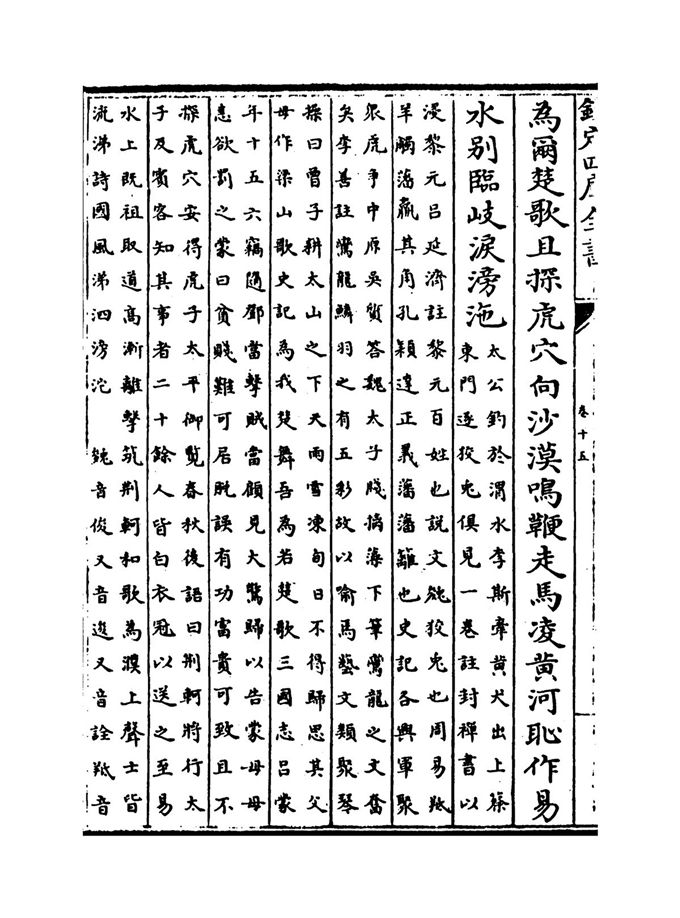 欽定四庫全書
卷十五
為爾楚歌且探虎穴向沙漠鳴鞭走馬凌黃河恥作易
水别臨岐淚滂沱
太公釣於渭水李斯牽黃犬出上蔡
東門逐狡兎俱見一卷註封禪書以
浸黎元吕延濟註黎元百姓也説文㕙狡兎也周易羝
羊觸藩羸其角孔穎達正義藩藩籬也史記各興軍聚
衆虎爭中原吳質答魏太子牋摛藻下筆鸞龍之文奮
矣李善註鸞龍鱗羽之有五彩故以喻焉藝文類聚琴
操曰曾子耕太山之下天雨雪凍旬日不得歸思其父
母作梁山歌史記為我楚舞吾為若楚歌三國志吕蒙
年十五六竊隨鄧當擊賊當顧見大驚歸以告蒙母母
恚欲罰之蒙曰貧賤難可居脱誤有功富貴可致且不
探虎穴安得虎子太平御覽春秋後語曰荆軻將行太
子及賓客知其事者二十餘人皆白衣冠以送之至易
水上既祖取道高漸離擊筑荆軻和歌為濮上聲士皆
流涕詩國風涕泗滂沱 㕙音俊又音逡又音詮羝音